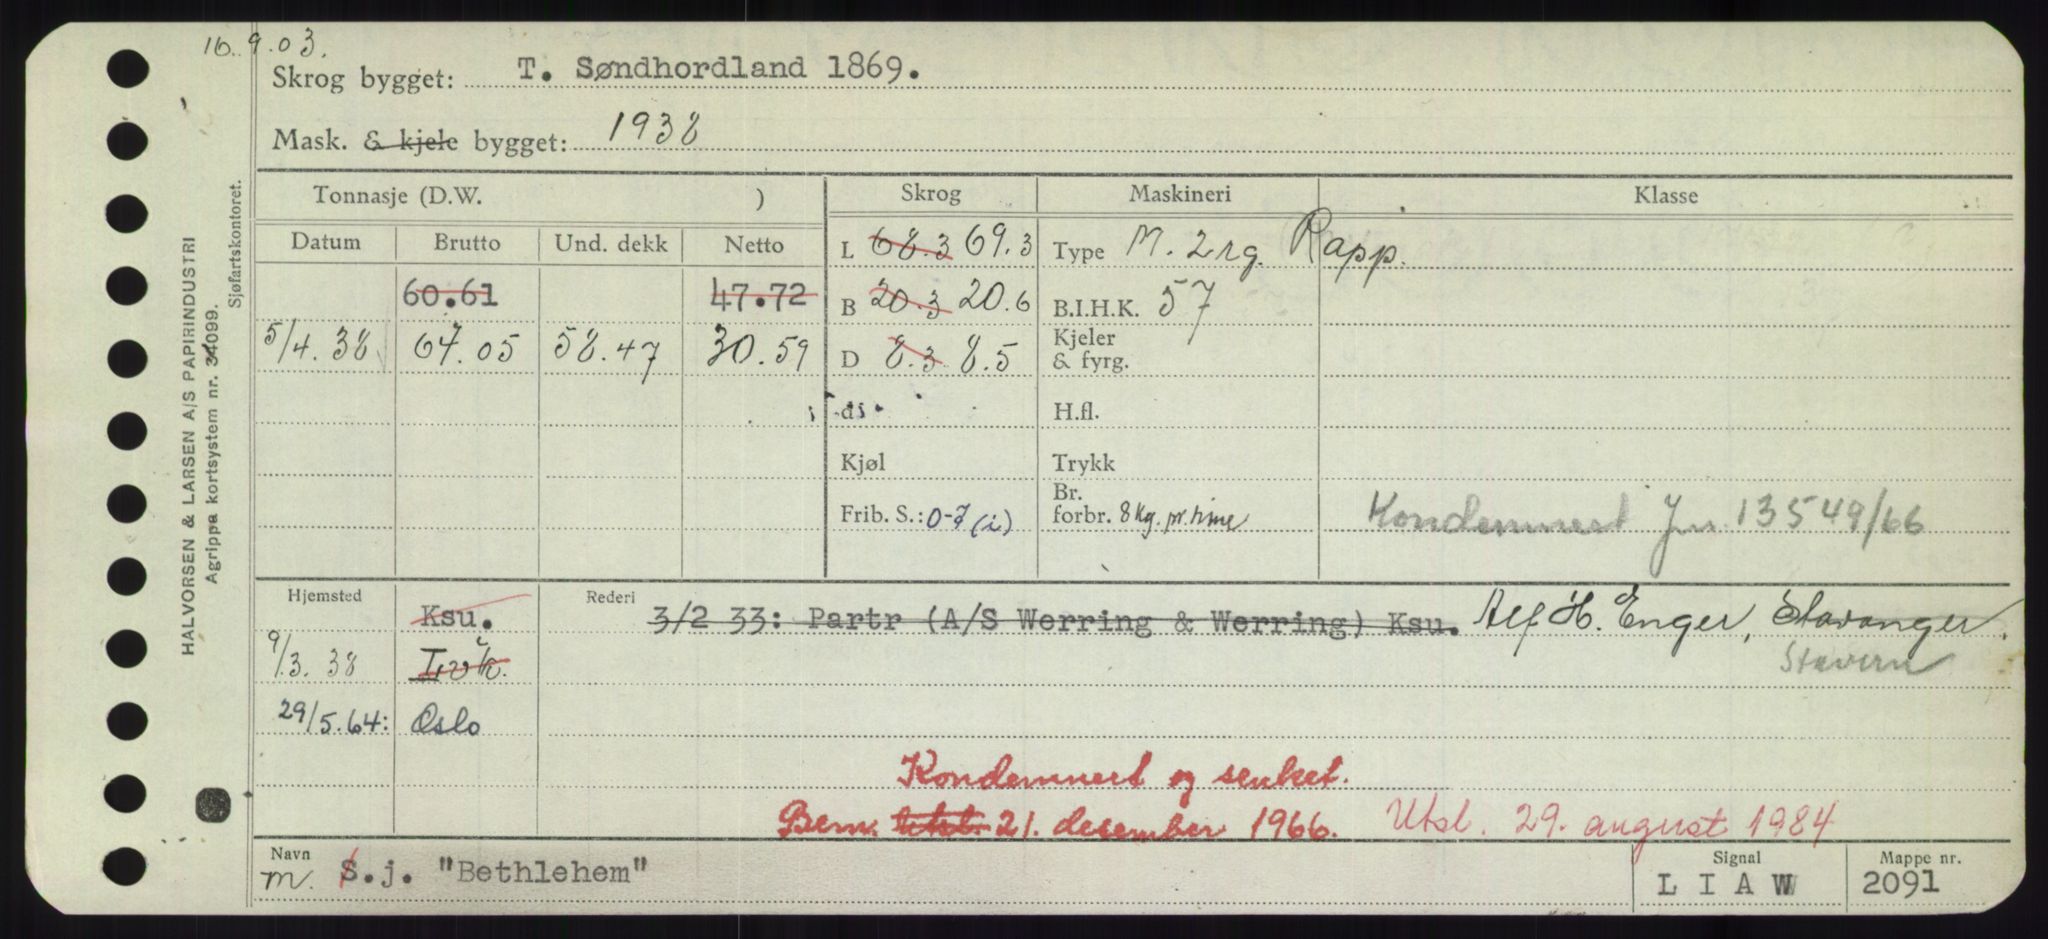 16.9.03.
Skrog bygget: T. Søndhordland 1869.
Mask. & kjele bygget: 1938
Tonnasje (D.W. ) Skrog Maskineri Klasse
Datum Brutto Und. dekk Netto
L 68.3 69.3 Type M. 2 rg. Rapp.
60.61 47.72 B 20.3 20.6 B.I.H.K. 57
5/4.38 67.05 58.47 30.59 D 8.3 8.5 Kjeler & fyrg.
di. H.fl.
Kjøl Trykk
Frib. S.: 0-7 (i) Br. forbr. 8 kg. pr. time Kondemnert Jnr. 13549/66
Hjemsted Ksu. Rederi 3/2 33: Partr (A/S Werring & Werring) Ksu. Alf H. Enger, Stavanger.
9/3.38 Lvik. Stavern
29/5.64: Oslo
Kondemnert og senket.
Bem. utsl. 21. desember 1966. Utsl. 29. august 1984
Navn m. S.j. "Bethlehem" Signal LIAW Mappe nr. 2091
HALVORSEN & LARSEN A/S PAPIRINDUSTRI
Agrippa kortsystem nr. 34099.
Sjøfartskontoret.